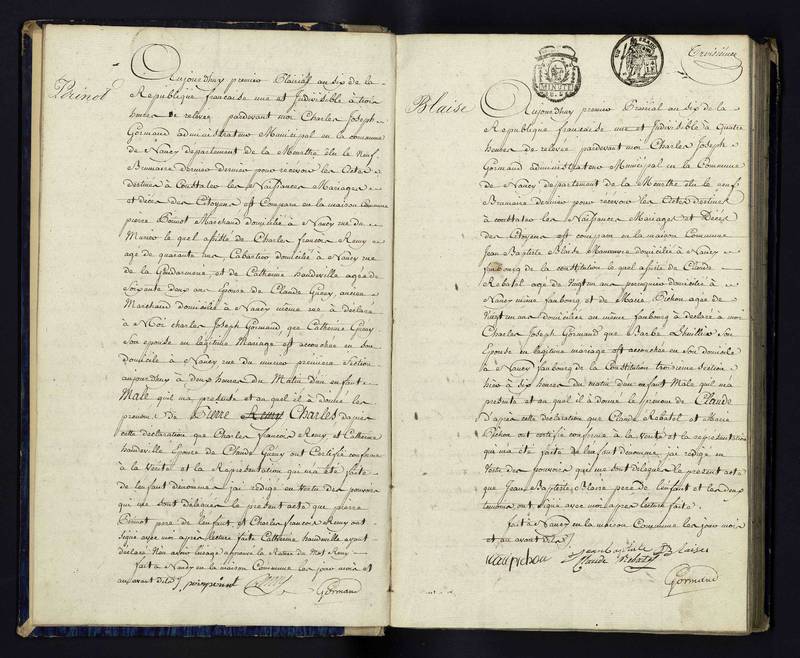 Prinot
Aujourdhuy premier Plairial an six de la
Republique francaise une et Indivisible à trois
heures de relevée pardevant moi Charles Joseph
Gormand administrateur Municipal en la commune
de Nancy departement de la Meurthe élu le neuf
Brumaire dernier dernier pour recevoir les Actes
destinés à Constater les Naissances Mariages
et Décès des Citoyens est Comparu en la maison commune
pierre Prinot Marchand domicilié à Nancy rue du
Muricr le quel assisté de Charles françois Remy
agé de quarante ans Cabartier domicilié à Nancy rue
de la Gendarmerie, et de Catherine handeville agée de
Soixante deux ans Epouse de Claude Guery, ancien
Marchand domiciliée à Nancy même rue à Déclaré
à Moi charles Joseph Gormand que Catherine Guery
Son épouse en légitime Mariage est accouchée en son
domicile à Nancy rue du murier premiere Section
aujourdhuy à deux heures du Matin d'un enfant
Male quil ma presenté et au quel il a donné les
prenoms de Pierre Remy Charles dapres
cette déclaration que Charles francois Remy, et Catherine
handeville Epouse de Claude Guery ont Certifié conforme
à la Verité et la Representation qui ma été faite
de lenfant dénommé, jai rédigé en Vertu des pouvoirs
qui me sont délégués le présent acte que pierre
Prinot pere de lenfant, et Charles francois Remy ont
Signé avec moi après lecture faite Catherine handeville ayant
declaré Non avoir lusage approuvé la Rature du mot Remy
fait à Nancy en la maison Commune les jour mois et
an avant dits
Gormand
Troisieme
Blaise
Aujourdhuy premier Prairial an six de la
Republique francaise une et Indivisible à Quatre
heures de relevée pardevant moi Charles Joseph
Gormand administrateur Municipal en la Commune
de Nancy departement de la Meurthe élu le neuf
Brumaire dernier pour recevoir les Actes destinés
à constater les Naissances Mariages et Décès
des Citoyens est comparu en la maison Commune
Jean Baptiste Blaise Manoeuvre domicilié à Nancy
faubourg de la constitution le quel assisté de Claude
Rebatol age de Vingt ans perruquier domicilié à
Nancy même faubourg et de Marie Pichon agée de
Vingt ans domiciliée au même faubourg à declaré à moi
Charles Joseph Gormand que Barbe Lhuillier Son
Epouse en legitime mariage est accouchée en Son domicile
à Nancy faubourg de la Constitution troisieme section
hier à six heures du matin d'un enfant Male quil ma
presenté et au quel il a donné le prenom de Claude
D'après cette déclaration que Claude Rebatol et Marie
Pichon ont certifié conforme à la Verité et la representation
qui ma été faite de lenfant dénommé jai rédigé en
Vertu des pouvoirs qui me sont délégués le présent acte
que Jean Baptiste Blaise pere de lenfant et les deux
temoins ont Signé avec moi apres lecture faite
fait à Nancy en la maison Commune les jour mois
et an avant dits
Jean Baptiste Blaise
Claude Rebatol
Gormand